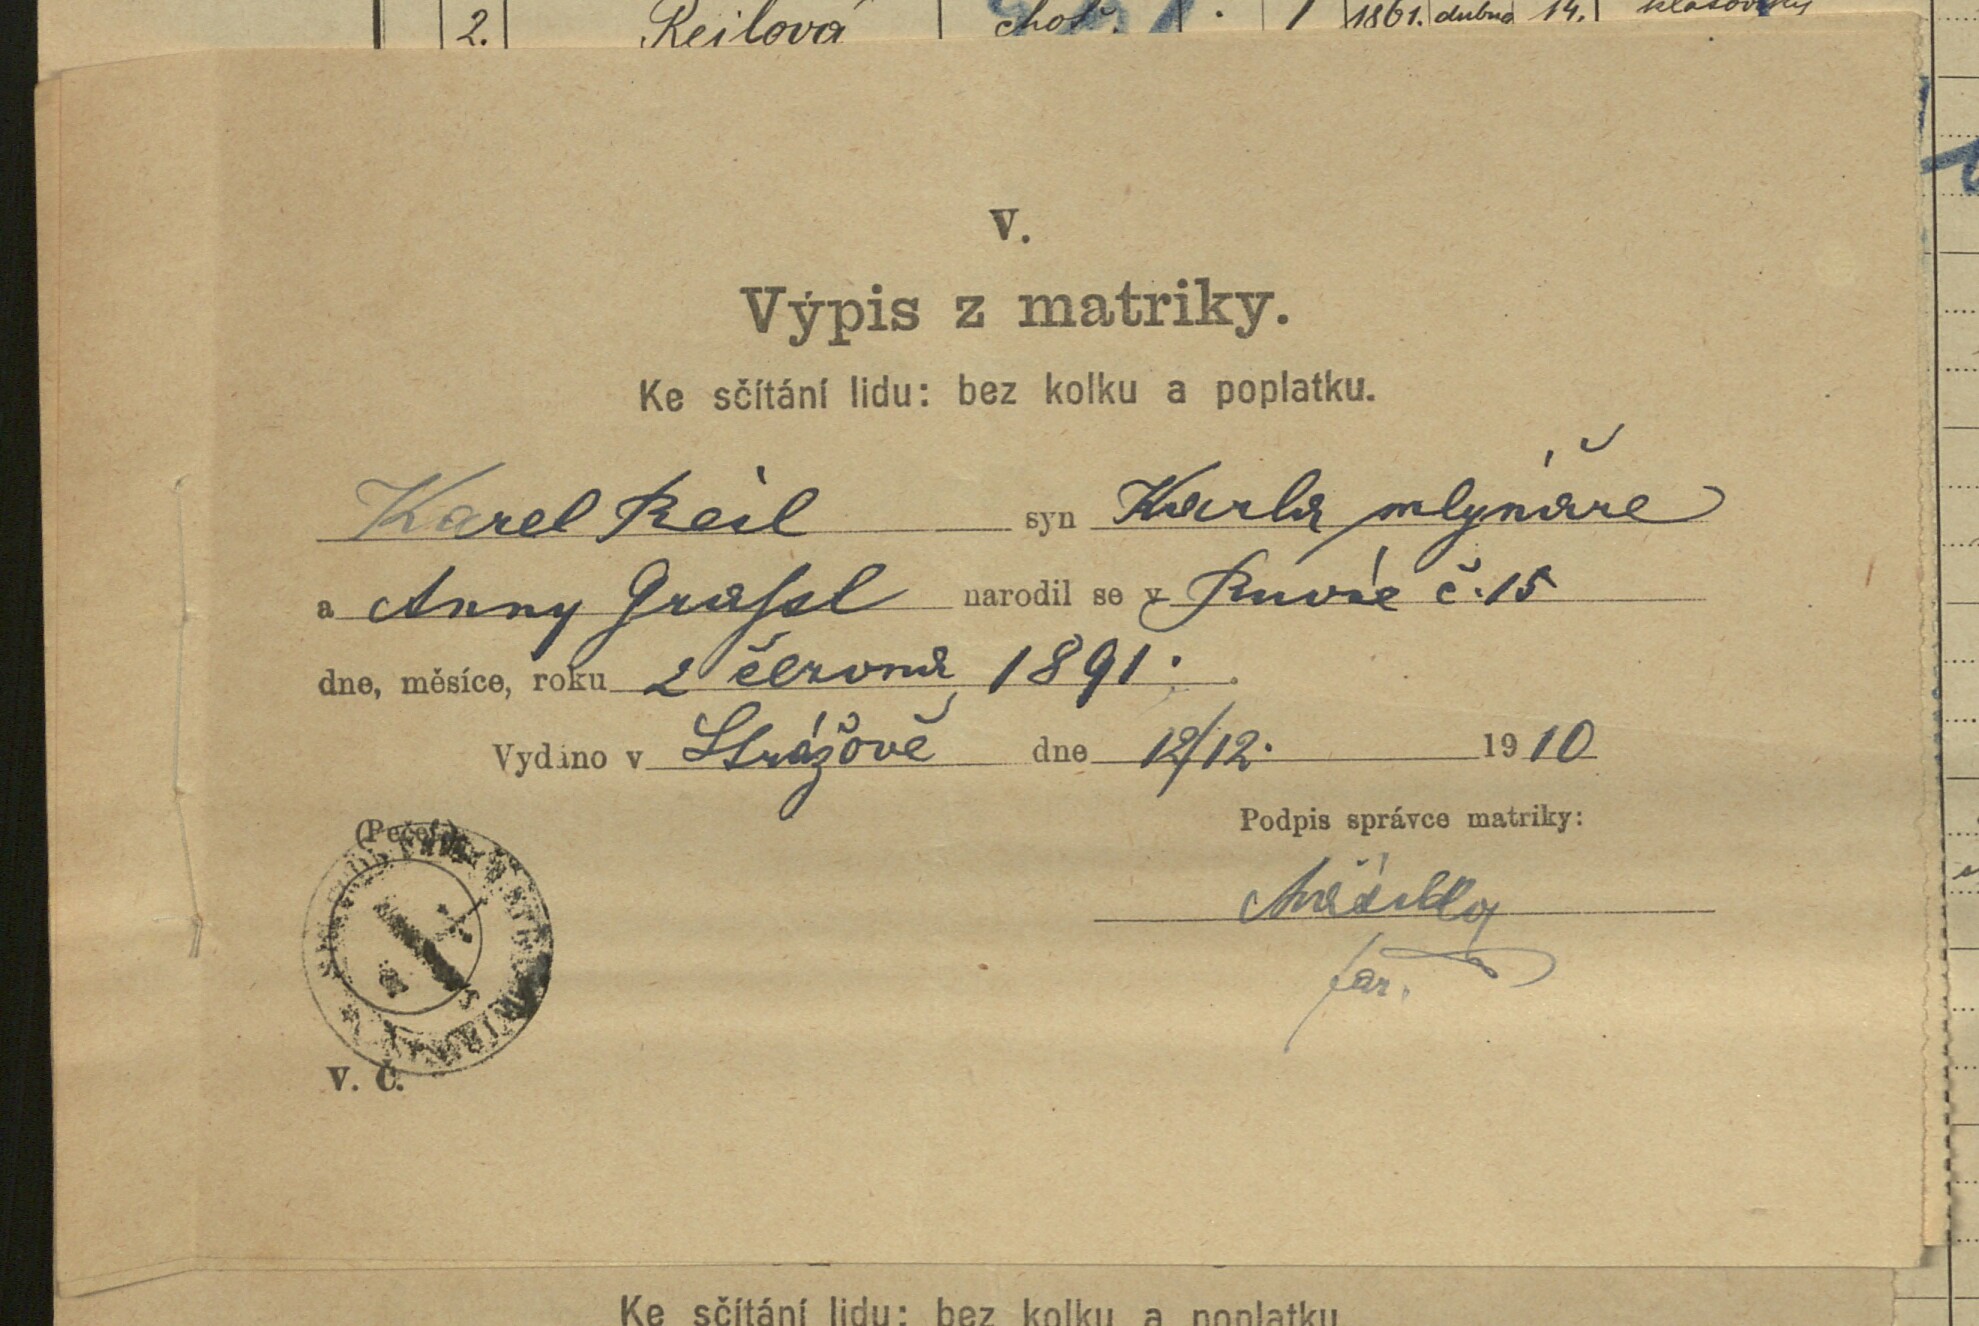 2. Reilová choť 1 1861. dubna 14.
V.
Výpis z matriky.
Ke sčítání lidu: bez kolku a poplatku.
Karel Reil syn Karla mlynáře
a Anny Grassl narodil se v č. 15
dne, měsíce, roku 2 června 1891.
Vydáno v Strážově dne 12/12. 1910
(Pečeť.)
Podpis správce matriky:
far.
V. Č.
Ke sčítání lidu: bez kolku a poplatku